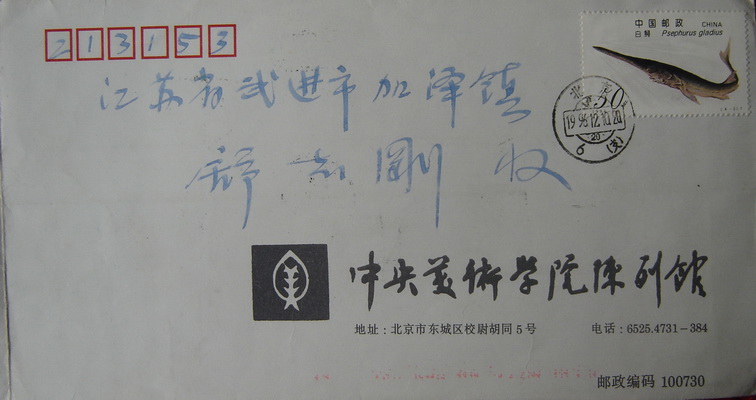 213153
中国邮政 CHINA
白鲟 Psephurus gladius
江苏省武进市加泽镇
北京
50
1996.12.10.20
20
6（支）
舒志刚 收
中央美術学院陈列館
地址：北京市东城区校尉胡同5号 电话：6525.4731－384
邮政编码 100730